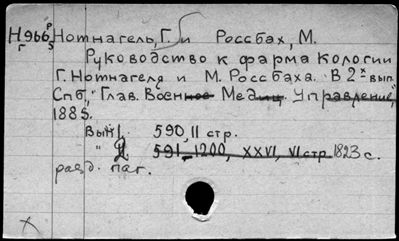 Н966 Нотнагель, Г. и Россбах, М.
Руководство к фармакологии
Г. Нотнагеля и М. Россбаха. В 2х вып.
Спб, "Глав. Военное Медиц. Управление",
1885.
Вып I. 590, II стр.
" II. 591-1200, XXVI, VI стр 1823 с.
разд. паг.